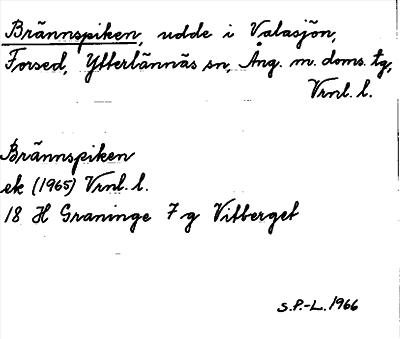 Brännspiken, udde i Valasjön,
Forsed, Ytterlännäs sn, Ång. m. doms. tg,
Vrnl. l.
Brännspiken
ek (1965) Vrnl. l.
18 H Graninge 7 g Vitberget
S.P.-L. 1966